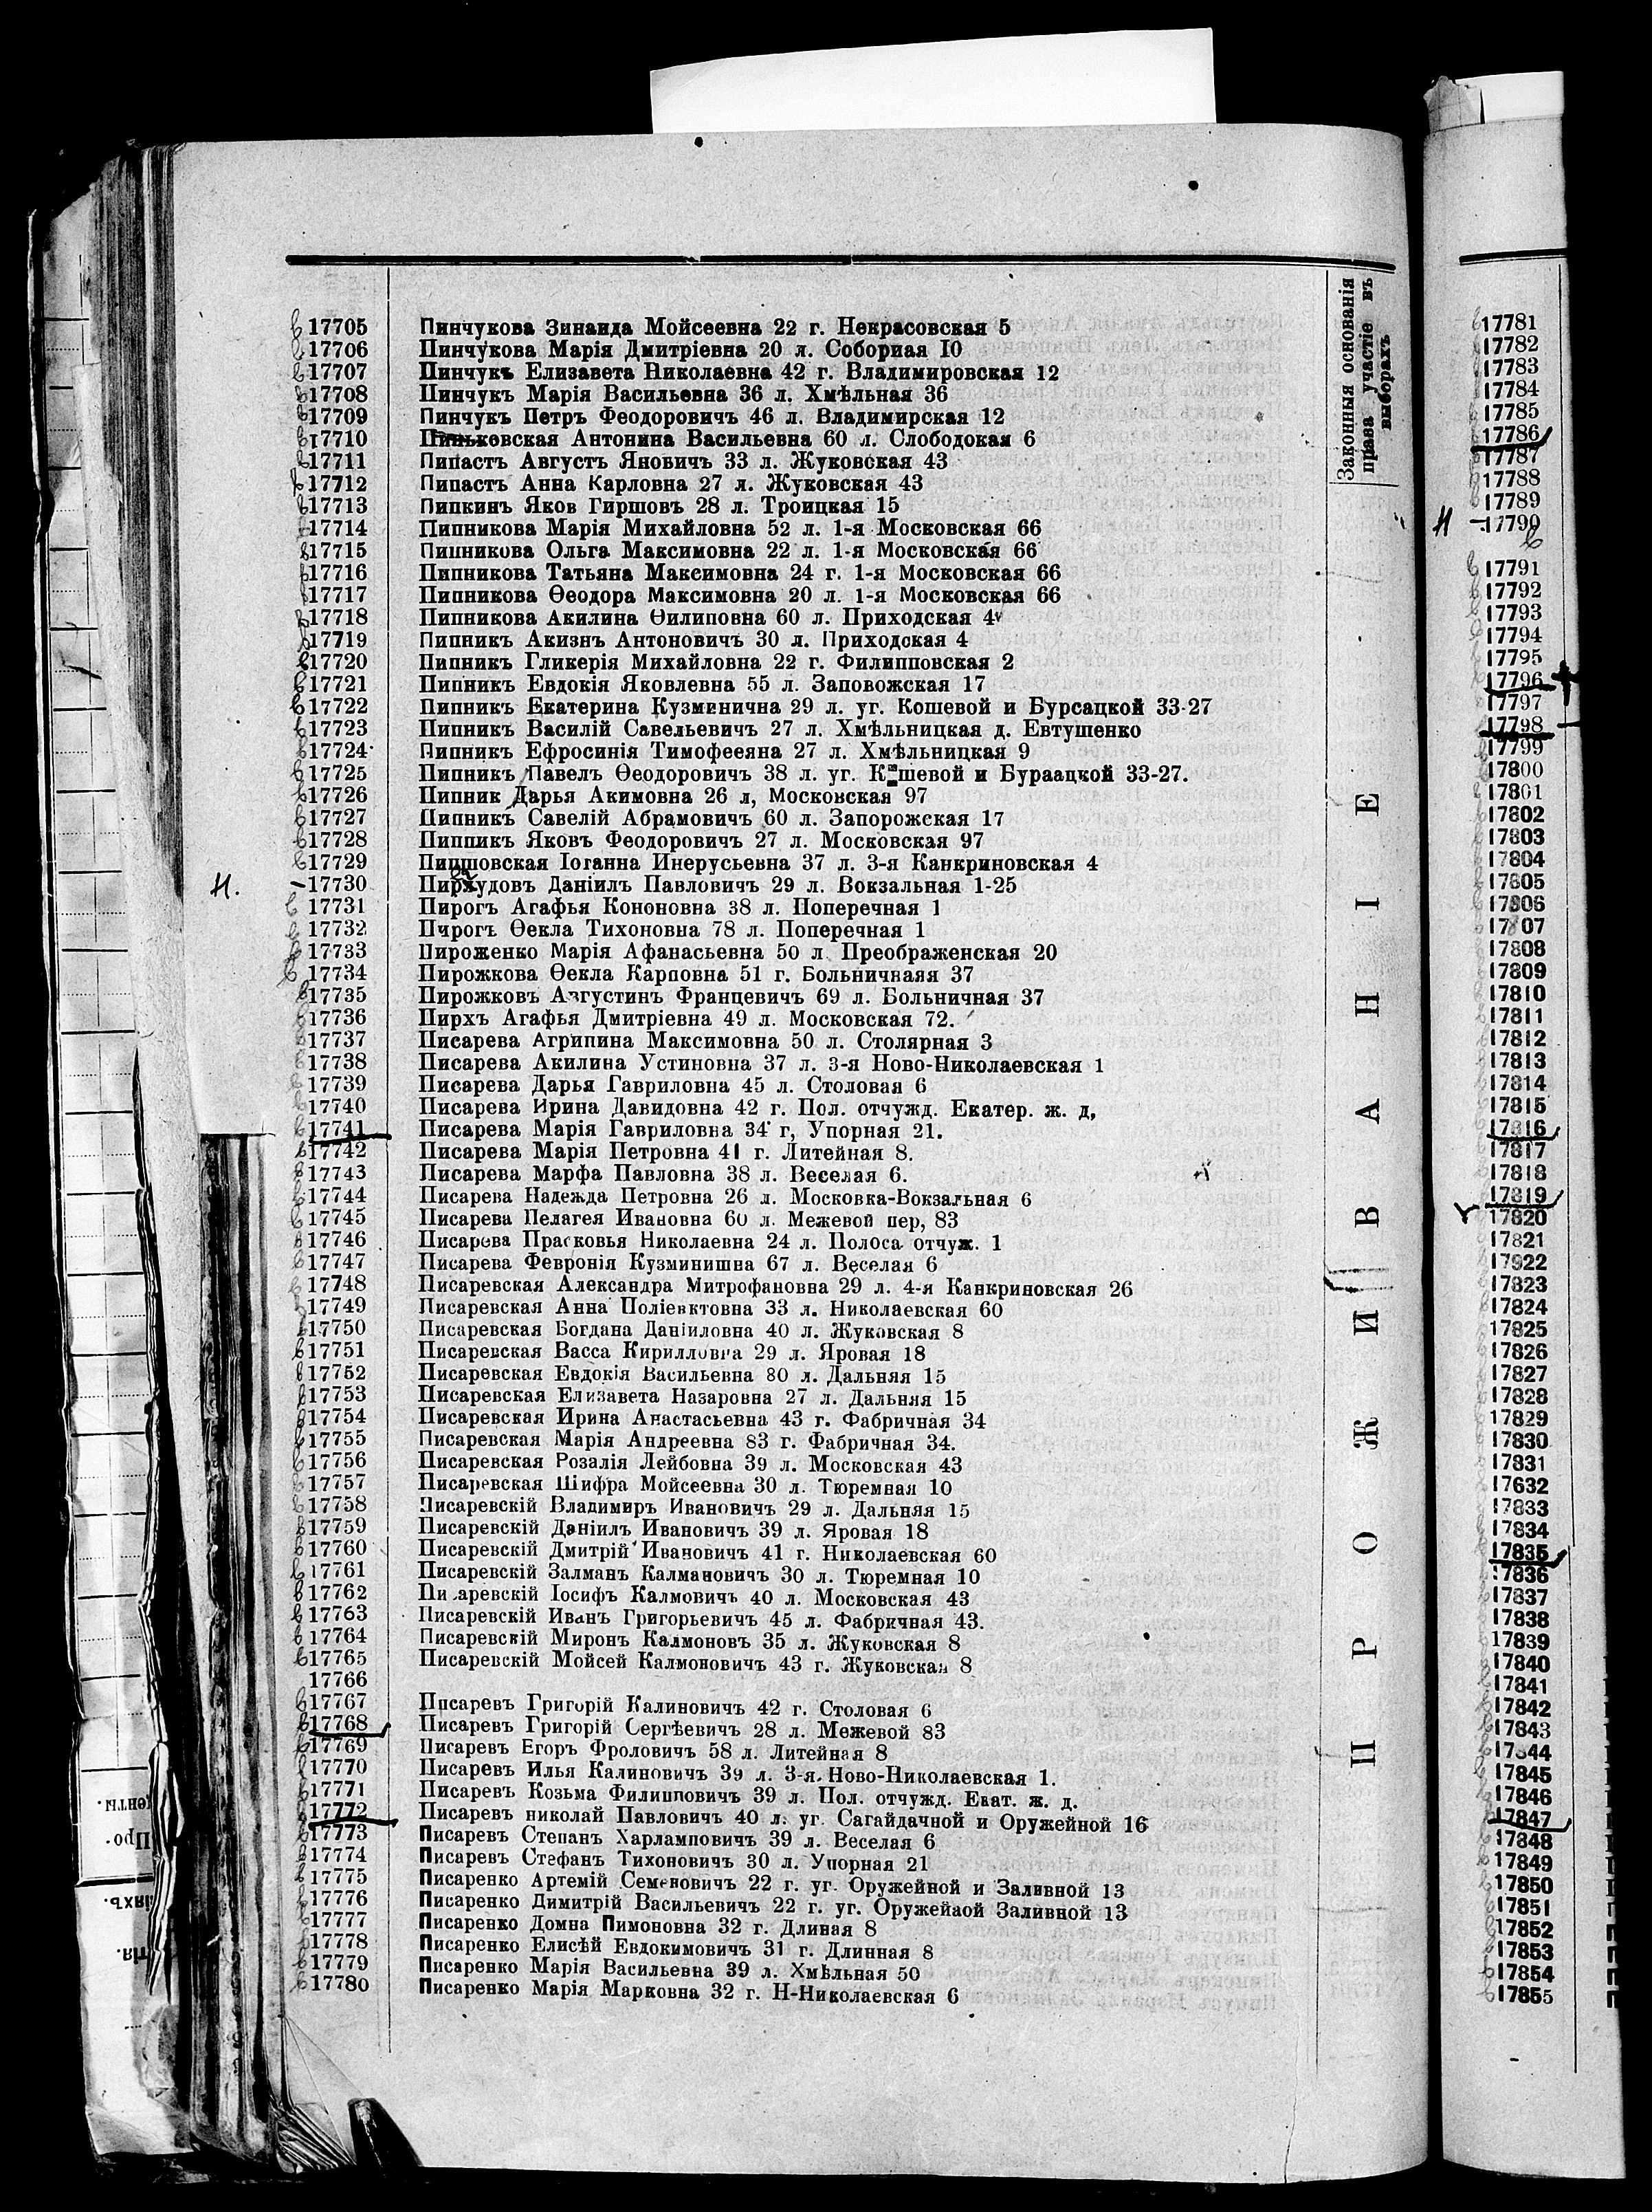 Законныя основанія
права участіе въ
выборахъ
17705 Пинчукова Зинаида Мойсеевна 22 г. Некрасовская 5
17706 Пинчукова Марія Дмитріевна 20 л. Соборная 10
17707 Пинчукъ Елизавета Николаевна 42 г. Владимировская 12
17708 Пинчукъ Марія Васильевна 36 л. Хмѣльная 36
17709 Пинчукъ Петръ Феодоровичъ 46 л. Владимирская 12
17710 Пиньковская Антонина Васильевна 60 л. Слободокая 6
17711 Пипастъ Августъ Яновичъ 33 л. Жуковская 43
17712 Пипастъ Анна Карловна 27 л. Жуковская 43
17713 Пипкинъ Яков Гиршовъ 28 л. Троицкая 15
17714 Пипникова Марія Михайловна 52 л. 1-я Московская 66
17715 Пипникова Ольга Максимовна 22 л. 1-я Московская 66
17716 Пипникова Татьяна Максимовна 24 г. 1-я Московская 66
17717 Пипникова Ѳеодора Максимовна 20 л. 1-я Московская 66
17718 Пипникова Акилина Ѳилиповна 60 л. Приходская 4
17719 Пипникъ Акизнъ Антоновичъ 30 л. Приходская 4
17720 Пипникъ Гликерія Михайловна 22 г. Филипповская 2
17721 Пипникъ Евдокія Яковлевна 55 л. Заповожская 17
17722 Пипникъ Екатерина Кузминична 29 л. уг. Кошевой и Бурсацкой 33-27
17723 Пипникъ Василій Савельевичъ 27 л. Хмѣльницкая д. Евтушенко
17724 Пипникъ Ефросинія Тимофееяна 27 л. Хмѣльницкая 9
17725 Пипникъ Павелъ Ѳеодоровичъ 38 л. уг. Кошевой и Бураацкой 33-27.
17726 Пипник Дарья Акимовна 26 л, Московская 97
17727 Пипникъ Савелій Абрамовичъ 60 л. Запорожская 17
17728 Пиппикъ Яковъ Феодоровичъ 27 л. Московская 97
17729 Пипшовская Іоганна Инерусьевна 37 л. 3-я Канкриновская 4
Н. 17730 Пирхудовъ Даніилъ Павловичъ 29 л. Вокзальная 1-25
17731 Пирогъ Агафья Кононовна 38 л. Поперечная 1
17732 Пирогъ Ѳекла Тихоновна 78 л. Поперечная 1
17733 Пироженко Марія Афанасьевна 50 л. Преображенская 20
17734 Пирожкова Ѳекла Карповна 51 г. Больничнаяя 37
17735 Пирожковъ Августинъ Францевичъ 69 л. Больничная 37
17736 Пирхъ Агафья Дмитріевна 49 л. Московская 72.
17737 Писарева Агрипина Максимовна 50 л. Столярная 3
17738 Писарева Акилина Устиновна 37 л. 3-я Ново-Николаевская 1
17739 Писарева Дарья Гавриловна 45 л. Столовая 6
17740 Писарева Ирина Давидовна 42 г. Пол. отчужд. Екатер. ж. д.
17741 Писарева Марія Гавриловна 34 г, Упорная 21.
17742 Писарева Марія Петровна 41 г. Литейная 8.
17743 Писарева Марфа Павловна 38 л. Веселая 6.
17744 Писарева Надежда Петровна 26 л. Московка-Вокзальная 6
17745 Писарева Пелагея Ивановна 60 л. Межевой пер, 83
17746 Писарева Прасковья Николаевна 24 л. Полоса отчуж. 1
17747 Писарева Февронія Кузминишна 67 л. Веселая 6
17748 Писаревская Александра Митрофановна 29 л. 4-я Канкриновская 26
17749 Писаревская Анна Поліевктовна 33 л. Николаевская 60
17750 Писаревская Богдана Даніиловна 40 л. Жуковская 8
17751 Писаревская Васса Кирилловна 29 л. Яровая 18
17752 Писаревская Евдокія Васильевна 80 л. Дальняя 15
17753 Писаревская Елизавета Назаровна 27 л. Дальняя 15
17754 Писаревская Ирина Анастасьевна 43 г. Фабричная 34
17755 Писаревская Марія Андреевна 83 г. Фабричная 34.
17756 Писаревская Розалія Лейбовна 39 л. Московская 43
17757 Писаревская Шифра Мойсеевна 30 л. Тюремная 10
17758 Писаревскій Владимиръ Ивановичъ 29 л. Дальняя 15
17759 Писаревскій Даніилъ Ивановичъ 39 л. Яровая 18
17760 Писаревскій Дмитрій Ивановичъ 41 г. Николаевская 60
17761 Писаревскій Залманъ Калмановичъ 30 л. Тюремная 10
17762 Писаревскій Іосифъ Калмовичъ 40 л. Московская 43
17763 Писаревскій Иванъ Григорьевичъ 45 л. Фабричная 43.
17764 Писаревскій Миронъ Калмоновъ 35 л. Жуковская 8
17765 Писаревскій Мойсей Калмоновичъ 43 г. Жуковская 8
17766
17767 Писаревъ Григорій Калиновичъ 42 г. Столовая 6
17768 Писаревъ Григорій Сергѣевичъ 28 л. Межевой 83
17769 Писаревъ Егоръ Фроловичъ 58 л. Литейная 8
17770 Писаревъ Илья Калиновичъ 39 л. 3-я. Ново-Николаевская 1.
17771 Писаревъ Козьма Филипповичъ 39 л. Пол. отчужд. Екат. ж. д.
17772 Писаревъ николай Павловичъ 40 л. уг. Сагайдачной и Оружейной 16
17773 Писаревъ Степанъ Харламповичъ 39 л. Веселая 6
17774 Писаревъ Стефанъ Тихоновичъ 30 л. Упорная 21
17775 Писаренко Артемій Семеновичъ 22 г. уг. Оружейной и Заливной 13
17776 Писаренко Димитрій Васильевич 22 г. уг. Оружейаой Заливной 13
17777 Писаренко Домна Пимоновна 32 г. Дливая 8
17778 Писаренко Елисѣй Евдокимовичъ 31 г. Длинная 8
17779 Писаренко Марія Васильевна 39 л. Хмѣльная 50
17780 Писаренко Марія Марковна 32 г. Н-Николаевская 6
ПРОЖИВАНІЕ
17781
17782
17783
17784
17785
17786
17787
17788
17789
Н 17790
17791
17792
17793
17794
17795
17796
17797
17798
17799
17800
17801
17802
17803
17804
17805
17806
17807
17808
17809
17810
17811
17812
17813
17814
17815
17816
17817
17818
17819
17820
17821
17922
17823
17824
17825
17826
17827
17828
17829
17830
17831
17632
17833
17834
17835
17836
17837
17838
17839
17840
17841
17842
17843
17844
17845
17846
17847
17848
17849
17850
17851
17852
17853
17854
17855